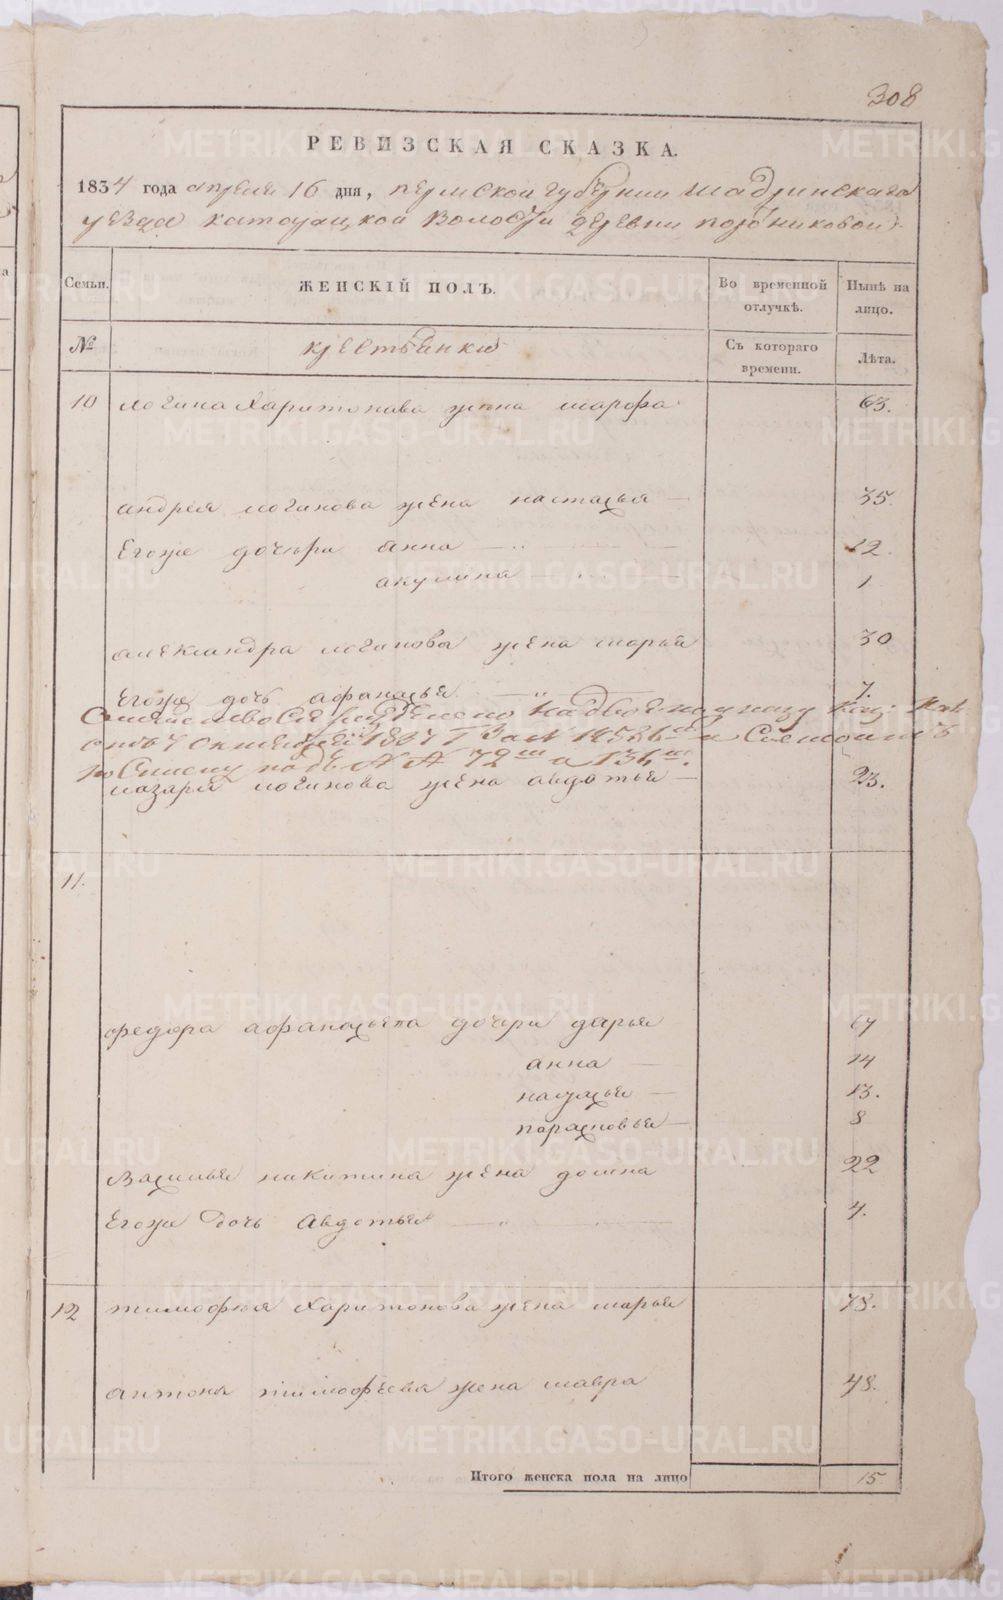 308
РЕВИЗСКАЯ СКАЗКА.
1834 года апреля 16 дня, пермской губернии шадринскаго
уезда катайцкой волости деревни
Семьи. ЖЕНСКІЙ ПОЛЪ. Во временной отлучкѣ. Нынѣ на лицо.
№ крестьянки Съ котораго времени. Лѣта.
10 логина Харитонава жена марфа 63.
андрея логинова жена настасья 35.
Егоже дочьри анна 12.
акулина 1
александра логинова жена марья 30
Егоже дочь афанасья 7.
лазаря логинова жена авдотья 23.
11.
федора афанасьева дочьри дарья 17
анна 14
настасья 13.
парасковья 8
Василья никитина жена домна 22
Егоже дочь Авдотья 4.
12 тимофея Харитонова жена марья 78.
антона тимофеева жена мавра 48.
Итого женска пола на лицо 15
METRIKI.GASO-URAL.RU